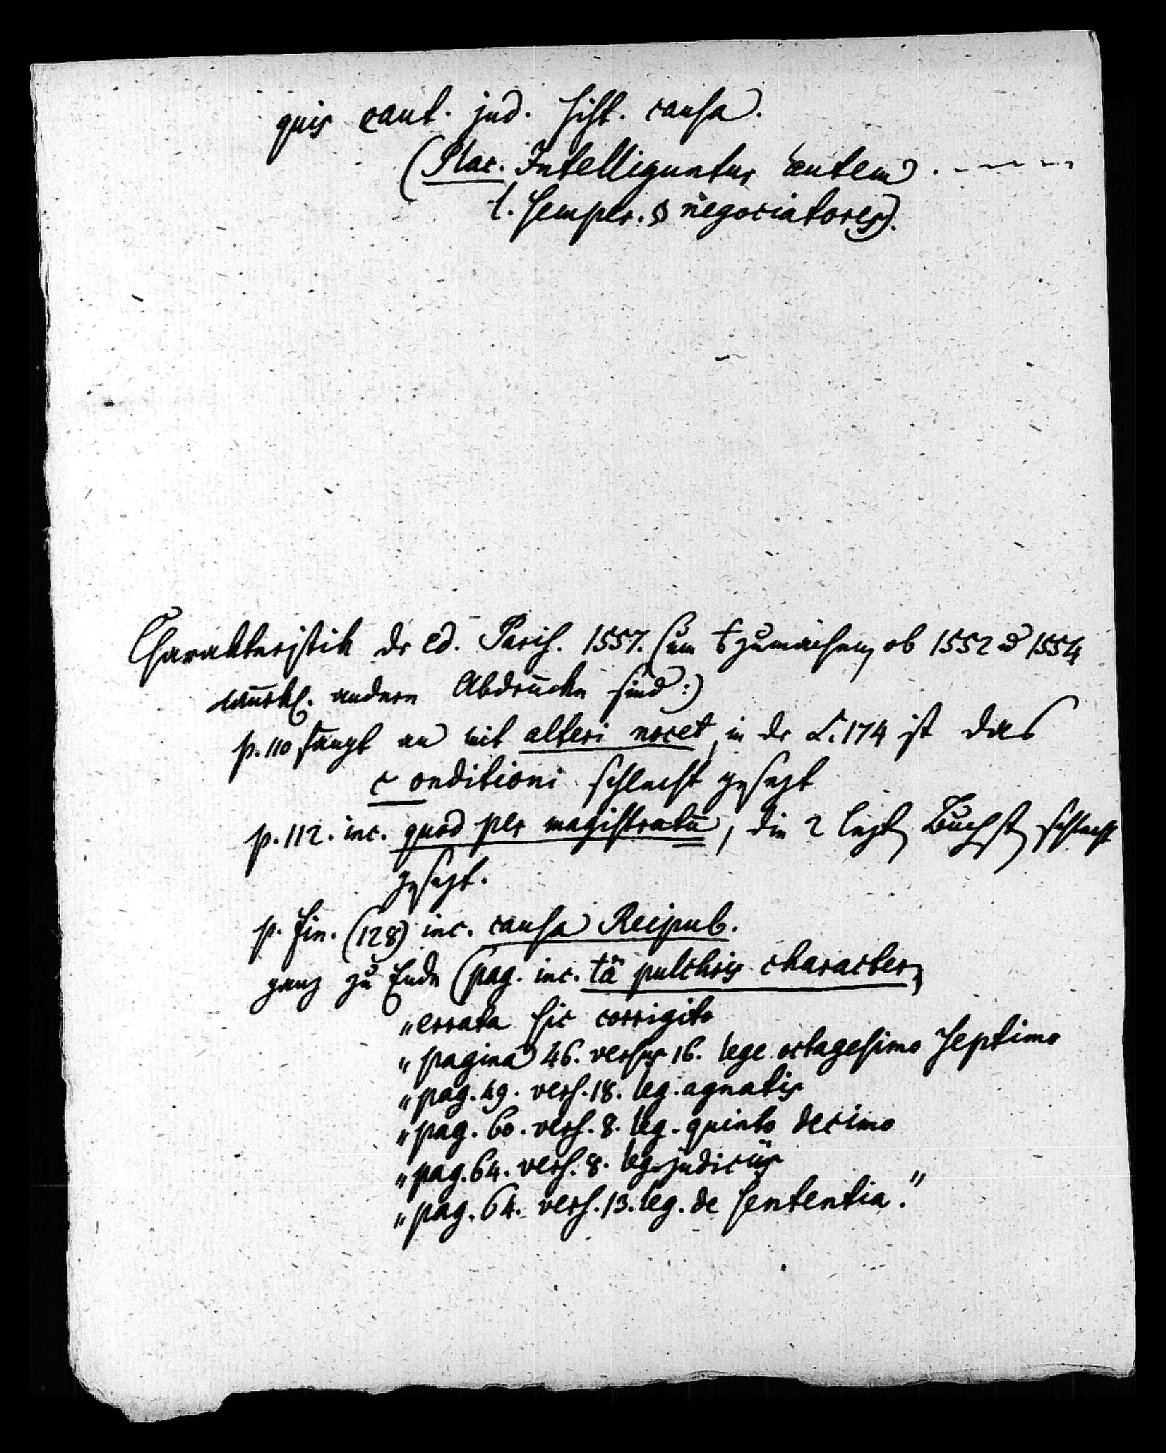 quis caut. jud. sist. causa.
(Plac. Intelliguntur autem . - - - -
t. semper. & negociatores).
Charakteristik der ed. Paris. 1557. (um zumachen, ob 1552 u 1554
andere Abdrucke sind :)
p. 110 fängt an mit alteri nocet, in der L. 174 ist das
c onditioni schlecht gesezt
p. 112. inc. quod per magistratū, die 2 lezten Buchst. schlecht
gesezt.
p. fin. (128) inc. causa Reipub.
ganz zu Ende (pag. inc. tā pulchris character
„errata sic corrigito
„pagina 46. versus 16. lege octagesimo septimo
„pag. 49. vers. 18. leg. agnatis
„pag. 60. vers. 8. leg. quinto decimo
„pag. 64. vers. 8. leg. judiciis
„pag. 64. vers. 13. leg. de sententia."